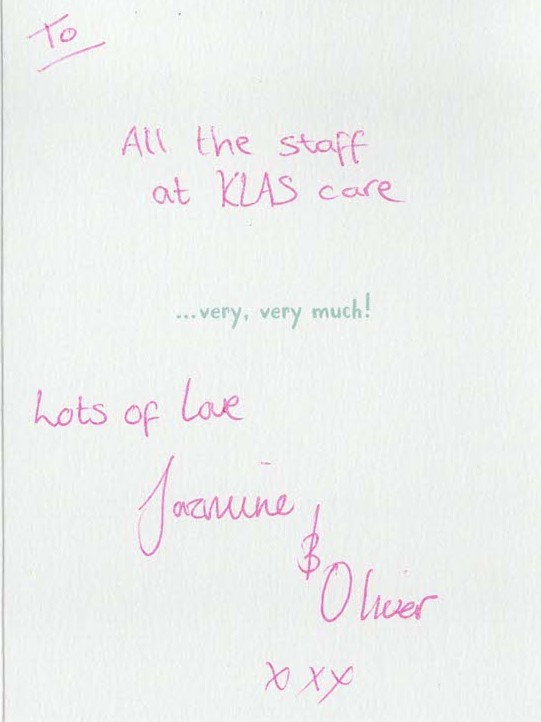 To
All the staff
at KLAS care
...very, very much!
Lots of Love
Jazmine
&
Oliver
x x x